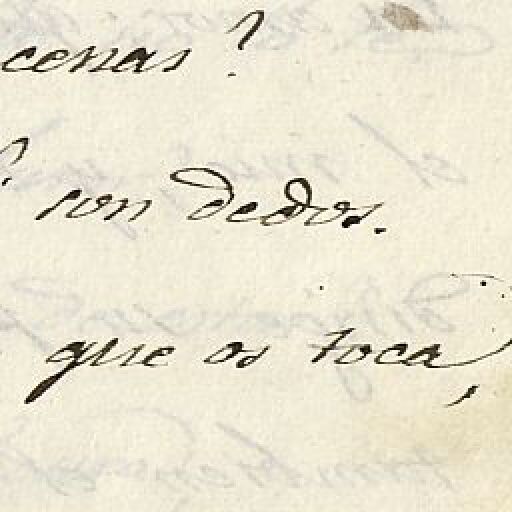 cenas?
son dedos.
que os toca,